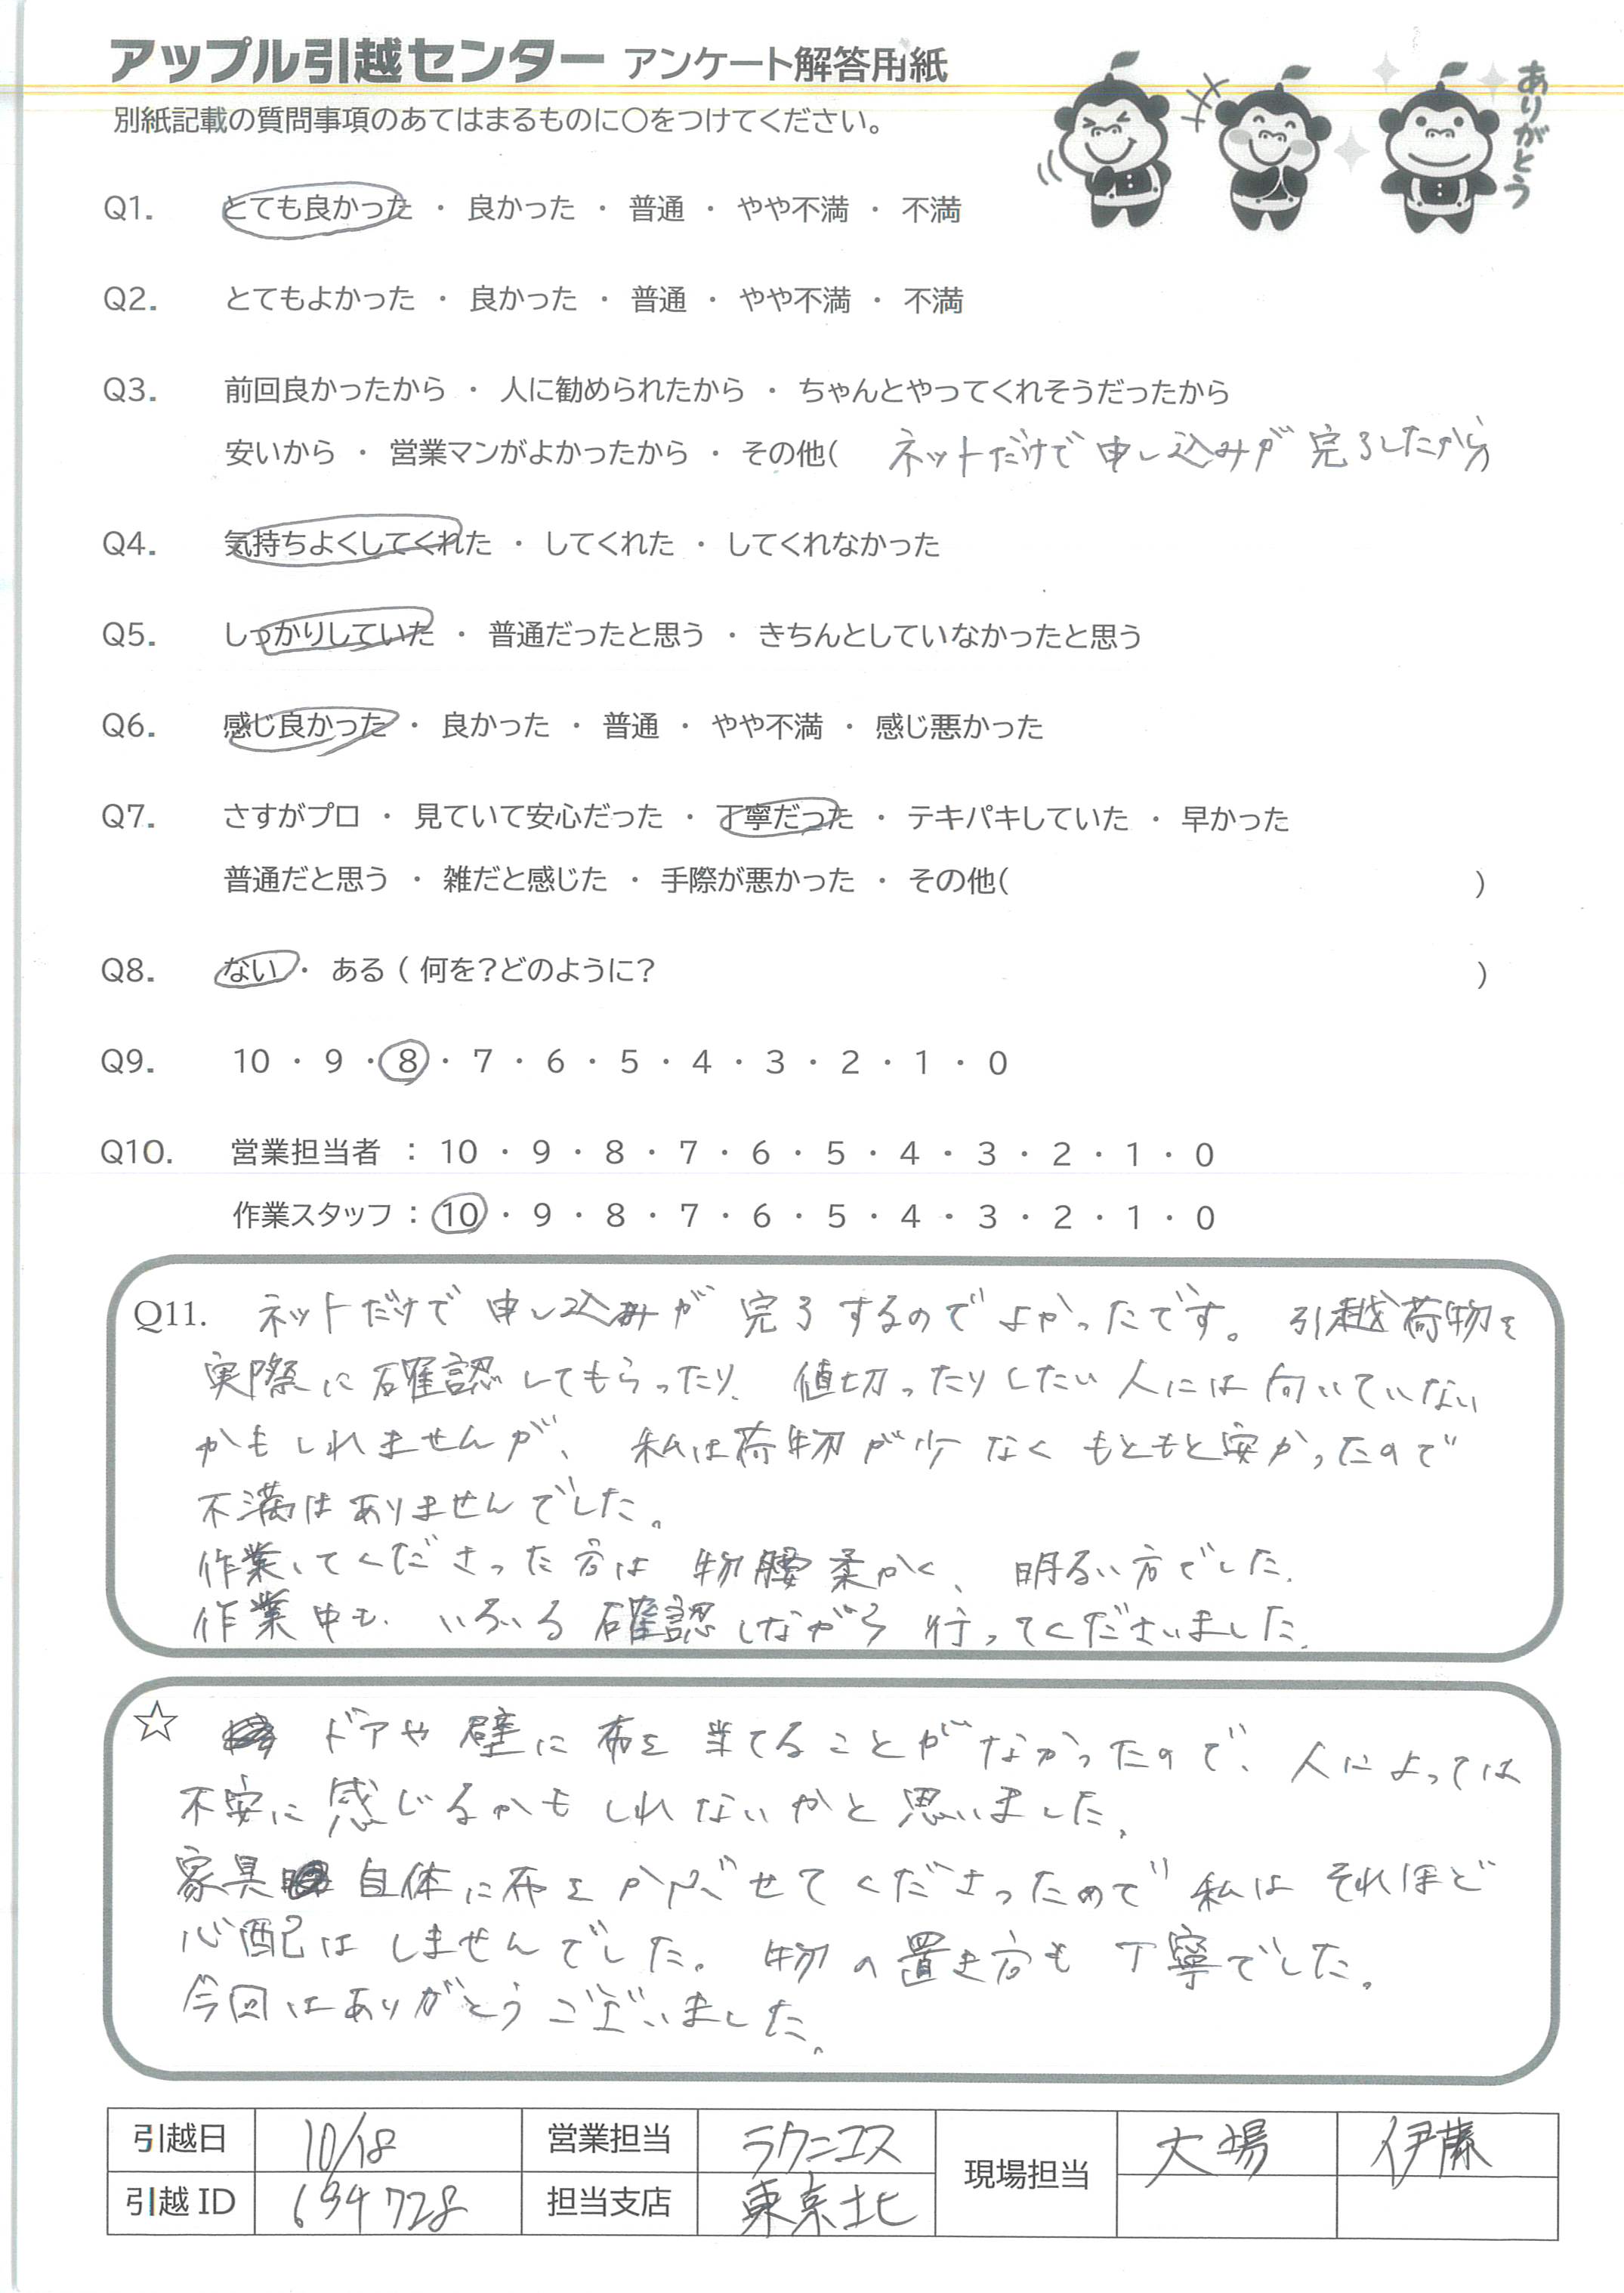 アップル引越センター アンケート解答用紙
別紙記載の質問事項のあてはまるものに○をつけてください。
ありがとう
Q1. とても良かった ・ 良かった ・ 普通 ・ やや不満 ・ 不満
Q2. とてもよかった ・ 良かった ・ 普通 ・ やや不満 ・ 不満
Q3. 前回良かったから ・ 人に勧められたから ・ ちゃんとやってくれそうだったから
安いから ・ 営業マンがよかったから ・ その他( ネットだけで申し込みが完了したから)
Q4. 気持ちよくしてくれた ・ してくれた ・ してくれなかった
Q5. しっかりしていた ・ 普通だったと思う ・ きちんとしていなかったと思う
Q6. 感じ良かった ・ 良かった ・ 普通 ・ やや不満 ・ 感じ悪かった
Q7. さすがプロ ・ 見ていて安心だった ・ 丁寧だった ・ テキパキしていた ・ 早かった
普通だと思う ・ 雑だと感じた ・ 手際が悪かった ・ その他( )
Q8. ない ・ ある ( 何を?どのように? )
Q9. 10 ・ 9 ・ 8 ・ 7 ・ 6 ・ 5 ・ 4 ・ 3 ・ 2 ・ 1 ・ 0
Q10. 営業担当者 : 10 ・ 9 ・ 8 ・ 7 ・ 6 ・ 5 ・ 4 ・ 3 ・ 2 ・ 1 ・ 0
作業スタッフ : 10 ・ 9 ・ 8 ・ 7 ・ 6 ・ 5 ・ 4 ・ 3 ・ 2 ・ 1 ・ 0
Q11. ネットだけで申し込みが完了するのでよかったです。引越荷物を
実際に確認してもらったり、値切ったりしたい人には向いていない
かもしれませんが、私は荷物が少なくもともと安かったので
不満はありませんでした。
作業してくださった方は物腰柔かく、明るい方でした。
作業中も、いろいろ確認しながら行ってくださいました。
☆ ドアや壁に布を当てることがなかったので、人によっては
不安に感じるかもしれないかと思いました。
家具自体に布をかぶせてくださったので私はそれほど
心配はしませんでした。物の置き方も丁寧でした。
今回はありがとうございました。
引越日 10/18 営業担当 ラクニコス 現場担当 大場 伊藤
引越ID 694728 担当支店 東京北